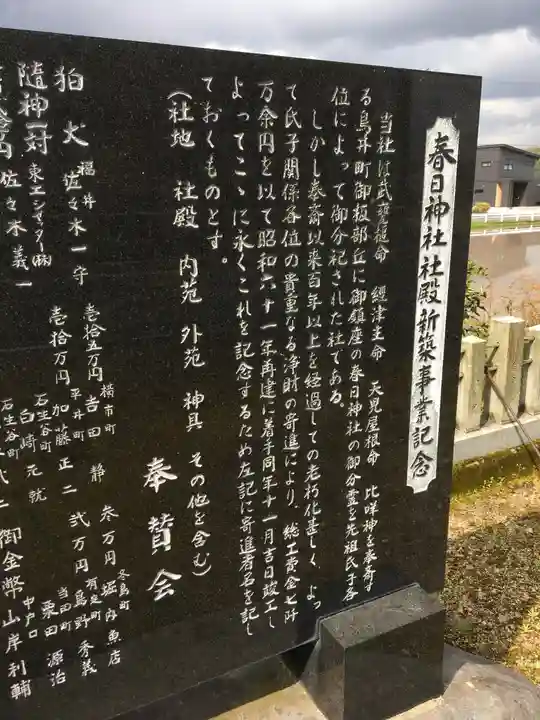 春日神社社殿新築事業記念
当社は武甕槌命 經津主命 天児屋根命 比咩神を奉斎す
る鳥井町御板部丘に御鎮座の春日神社の御分霊を先祖氏子各
位によって御分祀された社である。
しかし奉斎以来百年以上を経過しての老朽化甚しく、よっ
て氏子関係各位の貴重なる浄財の寄進により、総工費金七阡
万余円を以て昭和六十一年再建に着手同年十一月吉日竣工し
よってこゝに永くこれを記念するため左記に寄進者名を記し
ておくものとす。
(社地 社殿 内苑 外苑 神具 その他を含む)
奉賛会
狛犬 福井 佐々木一守 壱拾五万円 横市町 吉田 静 叁万円 冬島町 堀内魚店
隨神一対 東工シャッター㈱ 佐々木義一 壱拾万円 平井町 加藤正二 弐万円 有定町 島野秀義
石生谷町 白崎元號 当田町 栗田源治
石生谷町 御金幣 中戸口 山岸利輔